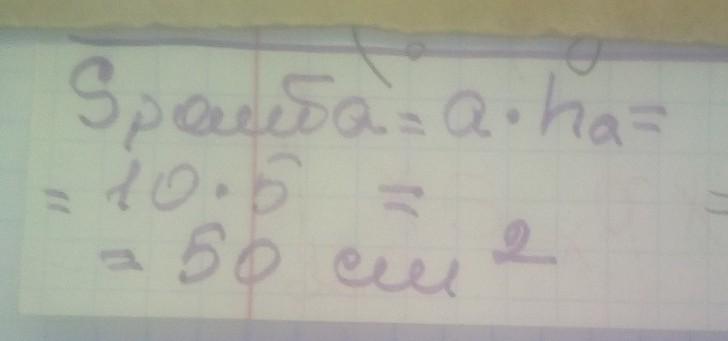 Sромба = a · ha =
= 10 · 5 =
= 50 см²